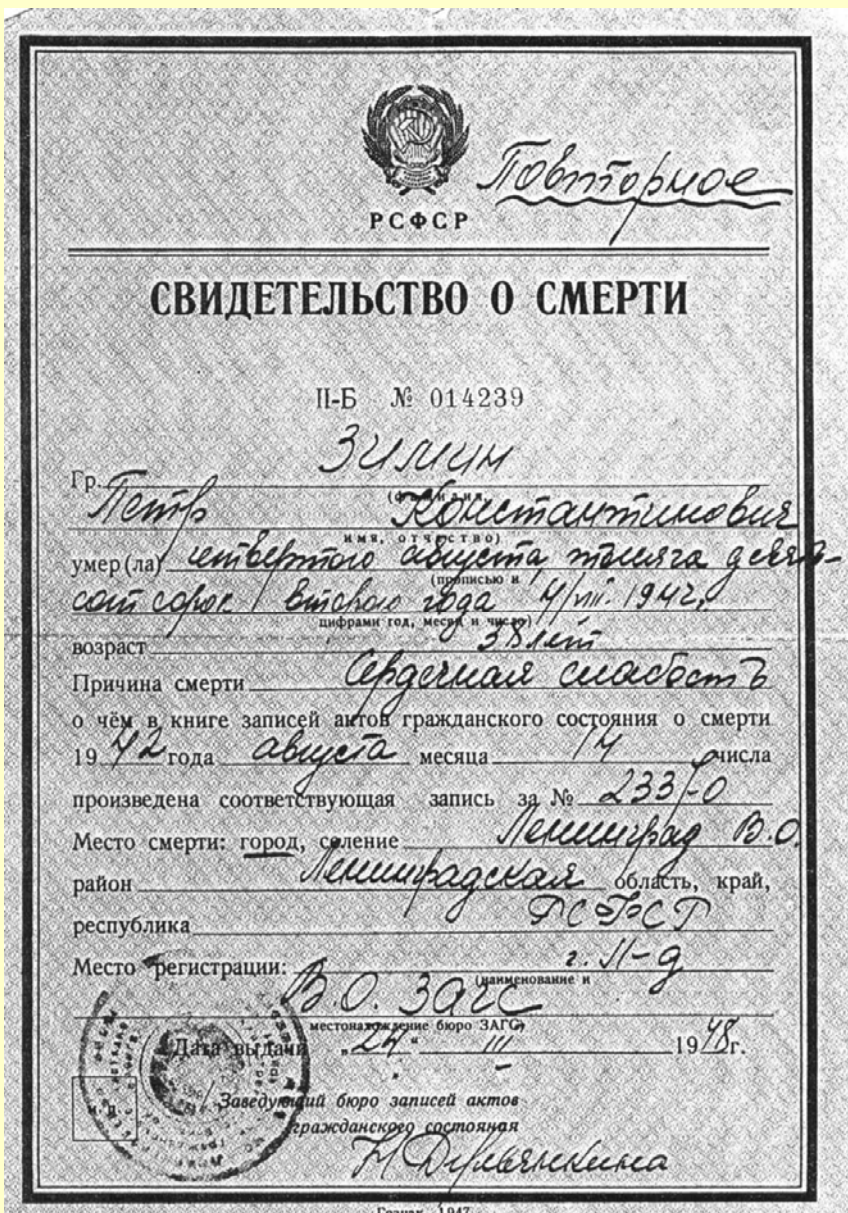 Повторное
РСФСР
СВИДЕТЕЛЬСТВО О СМЕРТИ
II-Б № 014239
Гр. Зимин
(фамилия,
Петр Константинович
имя, отчество)
умер(ла) четвертого августа, тысяча девять-
(прописью и
сот сорок второго года 4/VIII. 1942г.
цифрами год, месяц и число)
возраст 38 лет
Причина смерти Сердечная слабость
о чём в книге записей актов гражданского состояния о смерти
1942 года августа месяца 14 числа
произведена соответствующая запись за № 233/-0
Место смерти: город, селение Ленинград В.О.
район Ленинградская область, край,
республика РСФСР
Место регистрации: г. Л-д
(наименование и
В.О. ЗАГС
местонахождение бюро ЗАГС)
Дата выдачи „24“ III 1948г.
М. П.
Заведующий бюро записей актов
гражданского состояния
Гознак. 1947.